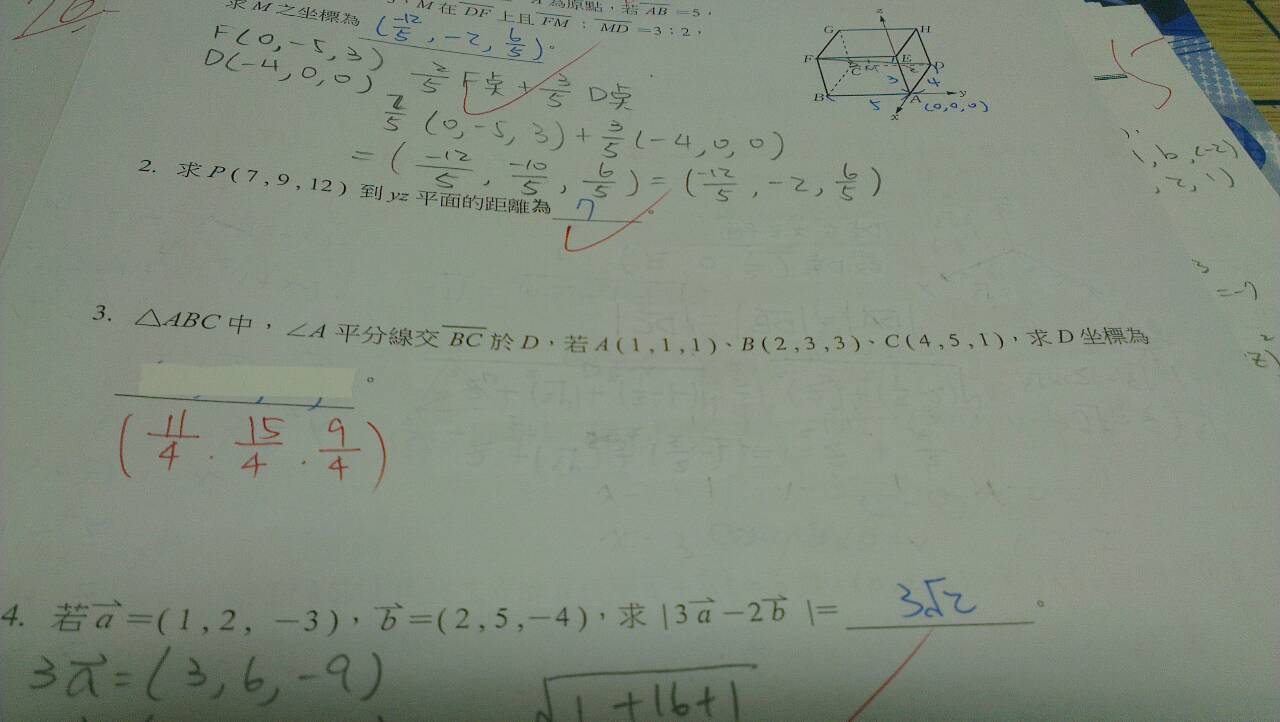 M 在 DF 上且 FM : MD = 3 : 2,
求 M 之坐標為 (-12/5, -2, 6/5)。
F(0, -5, 3)
D(-4, 0, 0)
2/5 F点 + 3/5 D点
2/5 (0, -5, 3) + 3/5 (-4, 0, 0)
= (-12/5, -10/5, 6/5) = (-12/5, -2, 6/5)
z
G H
F E D
C
3 4
B 5 A y
(0,0,0)
x
2. 求 P(7,9,12) 到 yz 平面的距離為 7。
3. △ABC 中,∠A 平分線交 BC 於 D,若 A(1,1,1)、B(2,3,3)、C(4,5,1),求 D 坐標為
。
(11/4 . 15/4 . 9/4)
4. 若 a = (1,2, -3),b = (2,5,-4),求 |3a - 2b| = 3√2。
3a = (3, 6, -9)
√1+16+1